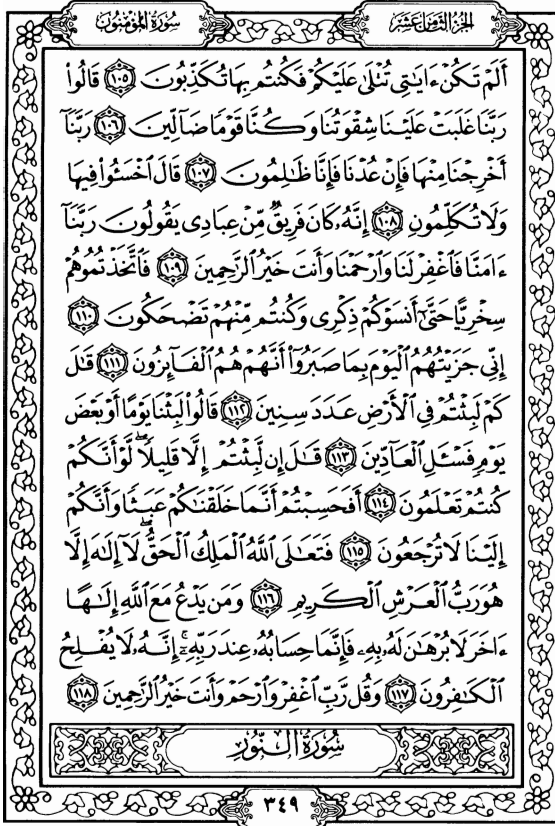 سُورَةُ المُؤۡمِنُونَ
الجُزۡءُ الثَّامِنَ عَشَرَ
أَلَمۡ تَكُنۡ ءَايَٰتِي تُتۡلَىٰ عَلَيۡكُمۡ فَكُنتُم بِهَا تُكَذِّبُونَ ١٠٥ قَالُواْ
رَبَّنَا غَلَبَتۡ عَلَيۡنَا شِقۡوَتُنَا وَكُنَّا قَوۡمٗا ضَآلِّينَ ١٠٦ رَبَّنَآ
أَخۡرِجۡنَا مِنۡهَا فَإِنۡ عُدۡنَا فَإِنَّا ظَٰلِمُونَ ١٠٧ قَالَ ٱخۡسَـُٔواْ فِيهَا
وَلَا تُكَلِّمُونِ ١٠٨ إِنَّهُۥ كَانَ فَرِيقٞ مِّنۡ عِبَادِي يَقُولُونَ رَبَّنَآ
ءَامَنَّا فَٱغۡفِرۡ لَنَا وَٱرۡحَمۡنَا وَأَنتَ خَيۡرُ ٱلرَّٰحِمِينَ ١٠٩ فَٱتَّخَذۡتُمُوهُمۡ
سِخۡرِيًّا حَتَّىٰٓ أَنسَوۡكُمۡ ذِكۡرِي وَكُنتُم مِّنۡهُمۡ تَضۡحَكُونَ ١١٠
إِنِّي جَزَيۡتُهُمُ ٱلۡيَوۡمَ بِمَا صَبَرُوٓاْ أَنَّهُمۡ هُمُ ٱلۡفَآئِزُونَ ١١١ قَٰلَ
كَمۡ لَبِثۡتُمۡ فِي ٱلۡأَرۡضِ عَدَدَ سِنِينَ ١١٢ قَالُواْ لَبِثۡنَا يَوۡمًا أَوۡ بَعۡضَ
يَوۡمٖ فَسۡـَٔلِ ٱلۡعَآدِّينَ ١١٣ قَٰلَ إِن لَّبِثۡتُمۡ إِلَّا قَلِيلٗاۖ لَّوۡ أَنَّكُمۡ
كُنتُمۡ تَعۡلَمُونَ ١١٤ أَفَحَسِبۡتُمۡ أَنَّمَا خَلَقۡنَٰكُمۡ عَبَثٗا وَأَنَّكُمۡ
إِلَيۡنَا لَا تُرۡجَعُونَ ١١٥ فَتَعَٰلَى ٱللَّهُ ٱلۡمَلِكُ ٱلۡحَقُّۖ لَآ إِلَٰهَ إِلَّا
هُوَ رَبُّ ٱلۡعَرۡشِ ٱلۡكَرِيمِ ١١٦ وَمَن يَدۡعُ مَعَ ٱللَّهِ إِلَٰهًا
ءَاخَرَ لَا بُرۡهَٰنَ لَهُۥ بِهِۦ فَإِنَّمَا حِسَابُهُۥ عِندَ رَبِّهِۦٓۚ إِنَّهُۥ لَا يُفۡلِحُ
ٱلۡكَٰفِرُونَ ١١٧ وَقُل رَّبِّ ٱغۡفِرۡ وَٱرۡحَمۡ وَأَنتَ خَيۡرُ ٱلرَّٰحِمِينَ ١١٨
سُورَةُ النُّورِ
٣٤٩